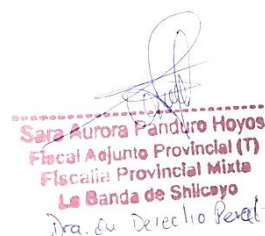 Sara Aurora Panduro Hoyos
Fiscal Adjunto Provincial (T)
Fiscalía Provincial Mixta
La Banda de Shilcayo
Dra. en Derecho Penal